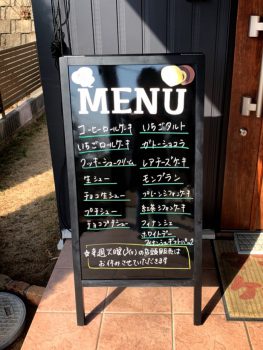 MENU
コーヒーロールケーキ
いちごロールケーキ
クッキーシュークリーム
生シュー
チョコ生シュー
プチシュー
チョコプチシュー
いちごタルト
ガトーショコラ
レアチーズケーキ
モンブラン
プレーンシフォンケーキ
紅茶シフォンケーキ
フィナンシェ
ホワイトデー
フィナンシェギフトパック
の店頭販売は
お休みさせていただきます